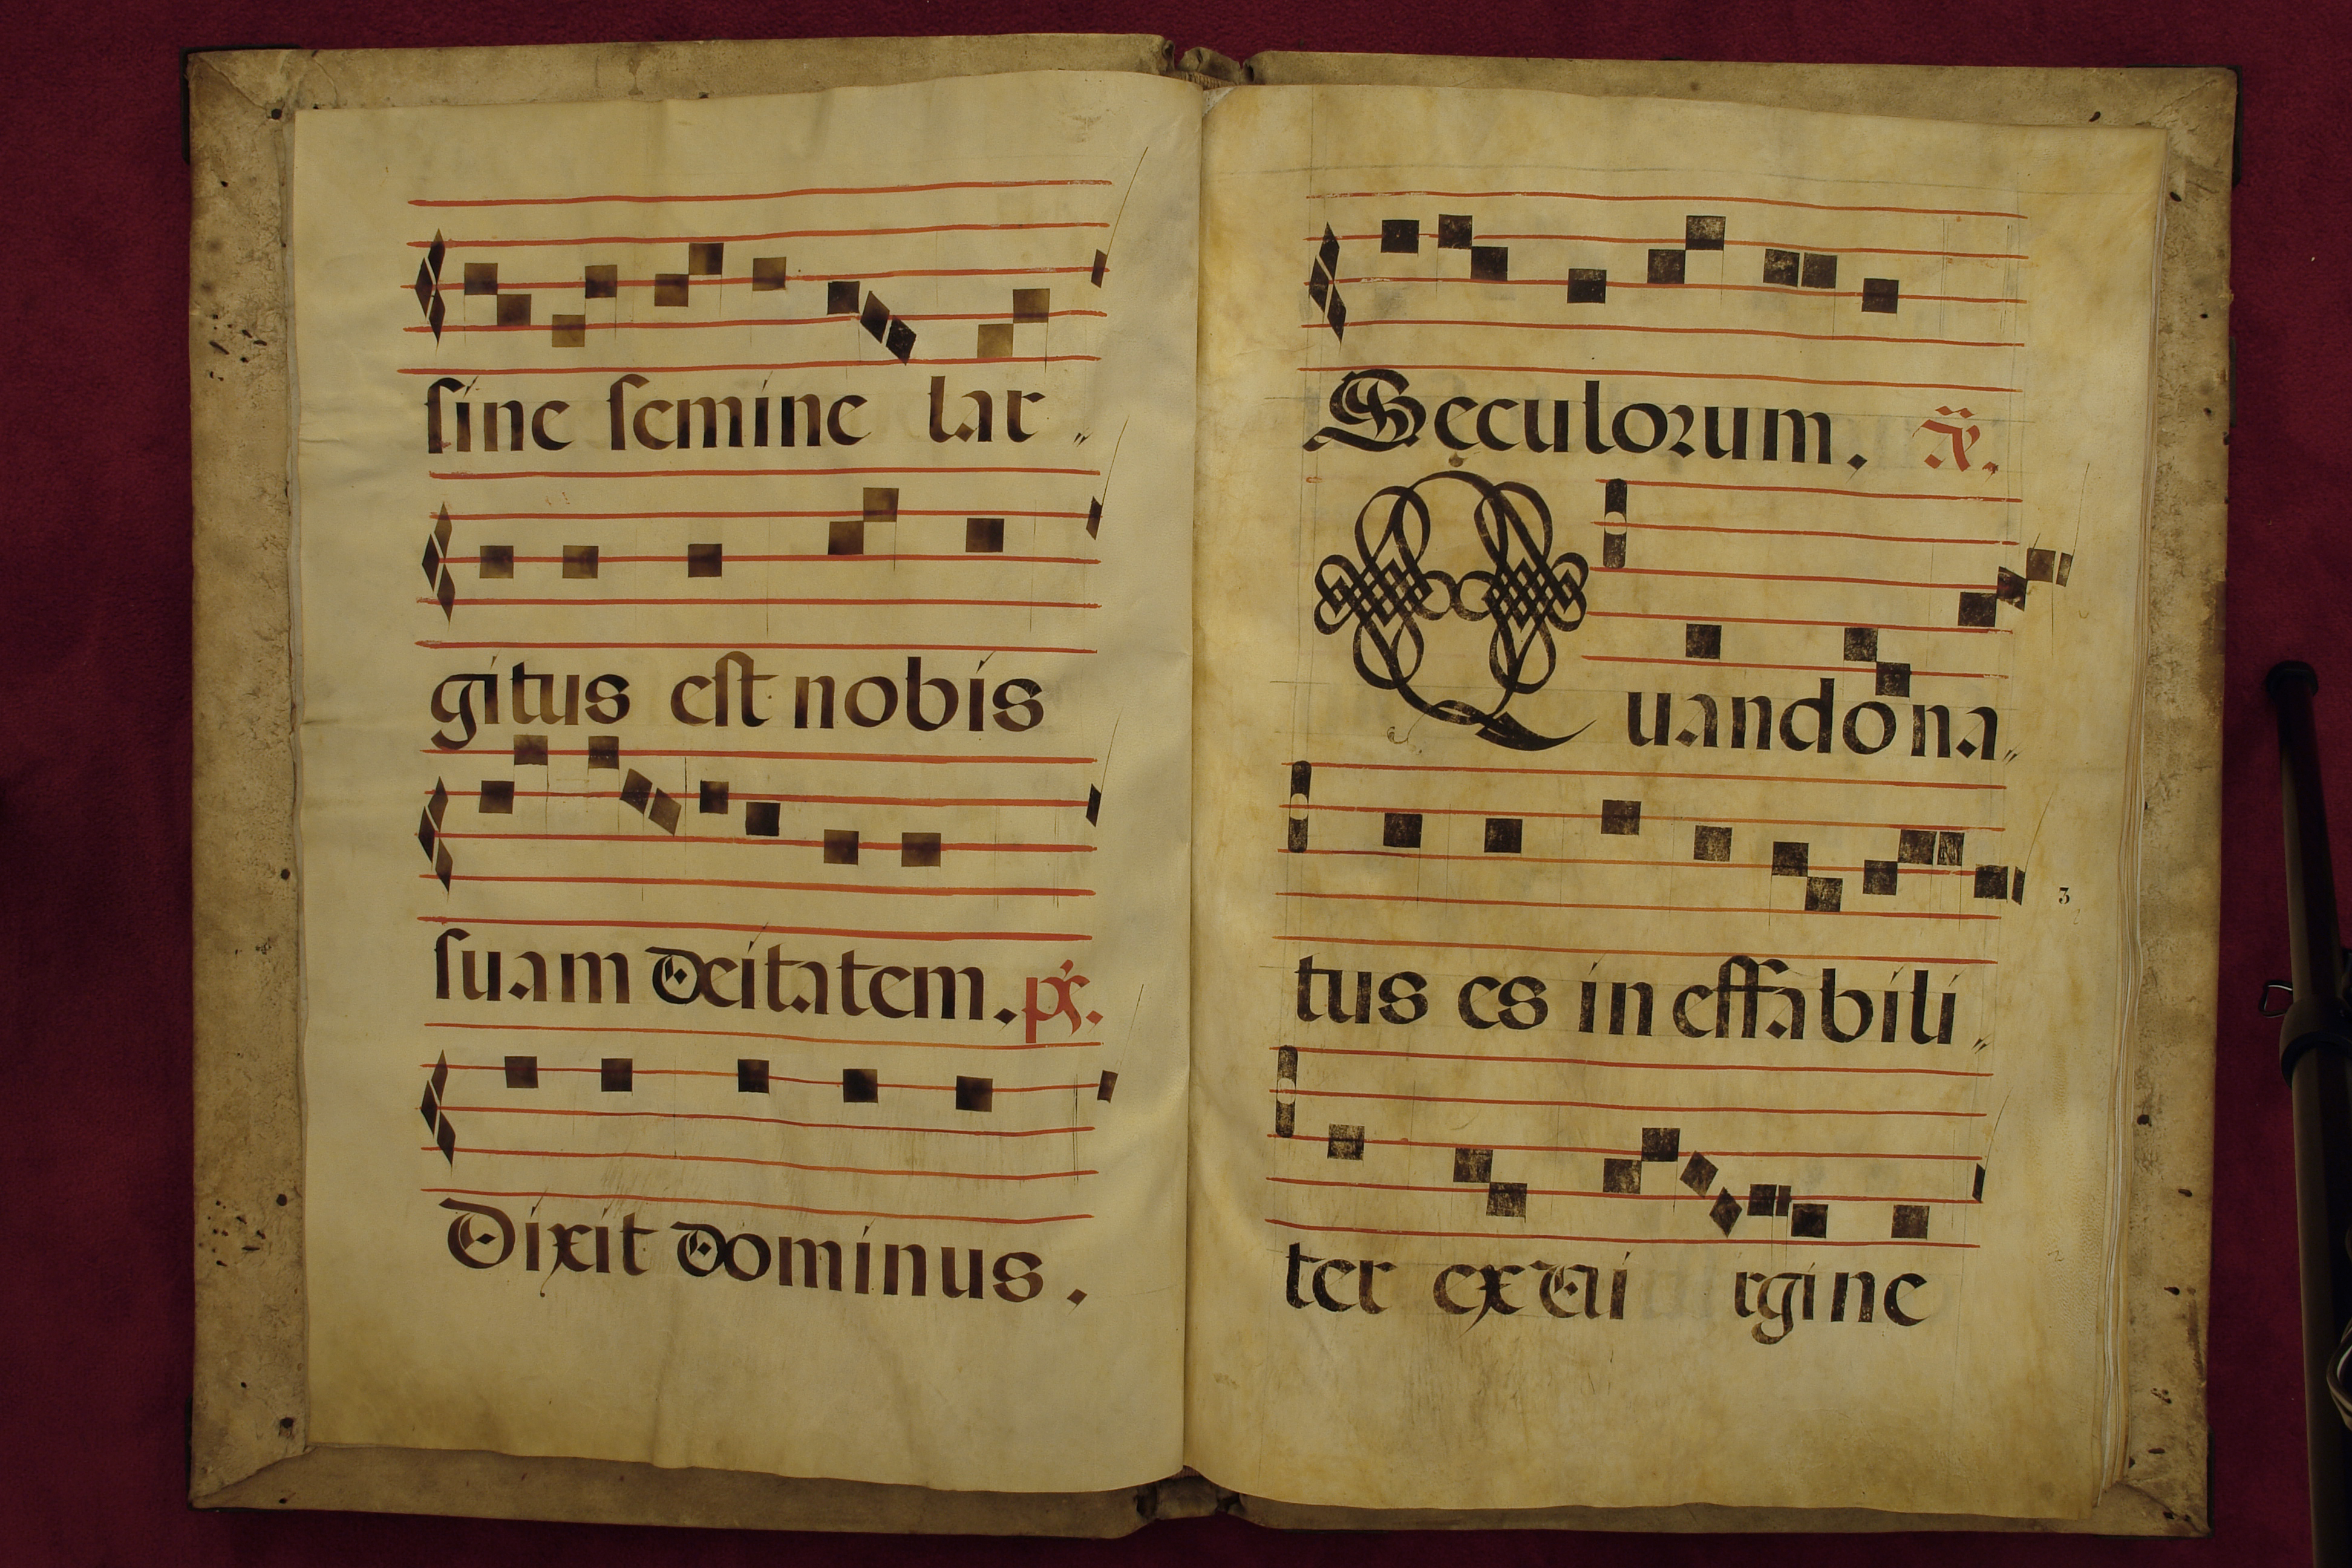 sine semine lar„
gitus est nobis
suam deitatem. ps.
Dixit Dominus.
Seculorum. ã.
Quando na„
tus es ineffabili„
ter ex vi rgine
3